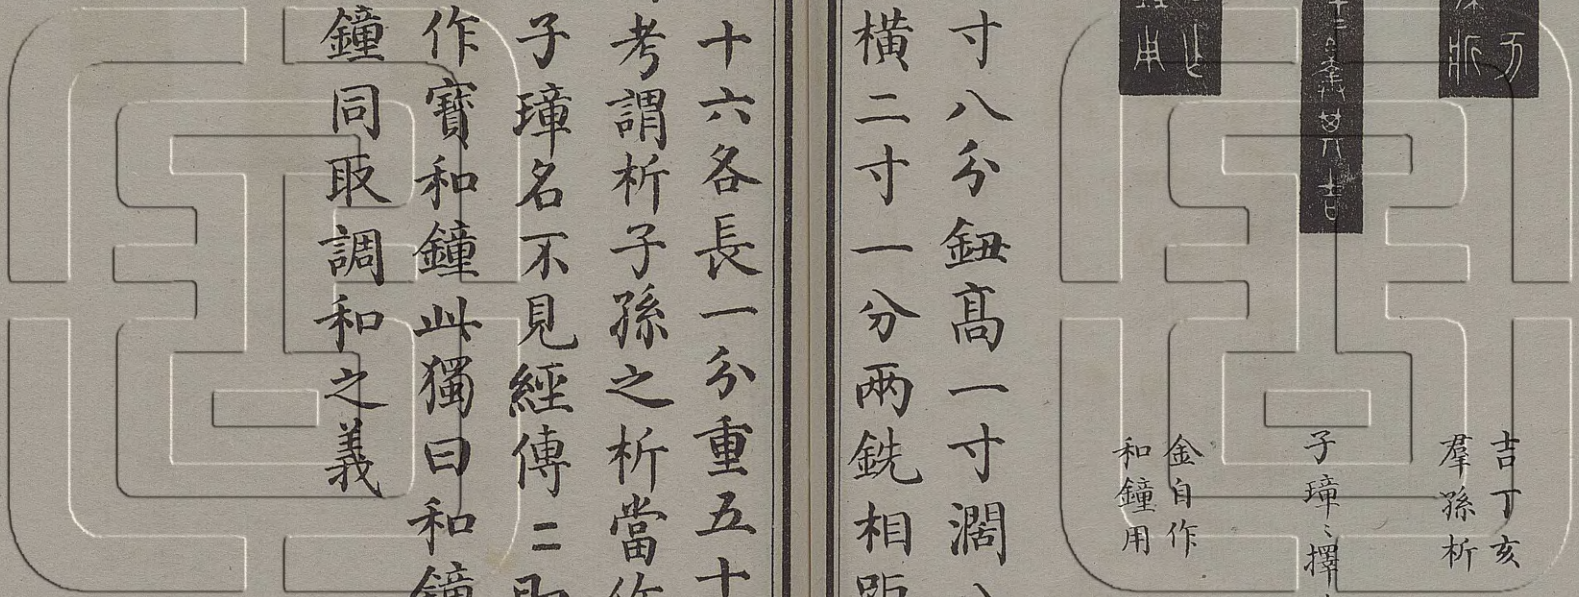 吉丁亥
羣孫斨
子璋〻擇
金自作
和鐘用
寸八分鈕高一寸濶
橫二寸一分兩銑相距
十六各長一分重五十
考謂斨子孫之斨當作
子璋名不見經傳二
作寶和鐘此獨曰和鐘
鐘同取調和之義